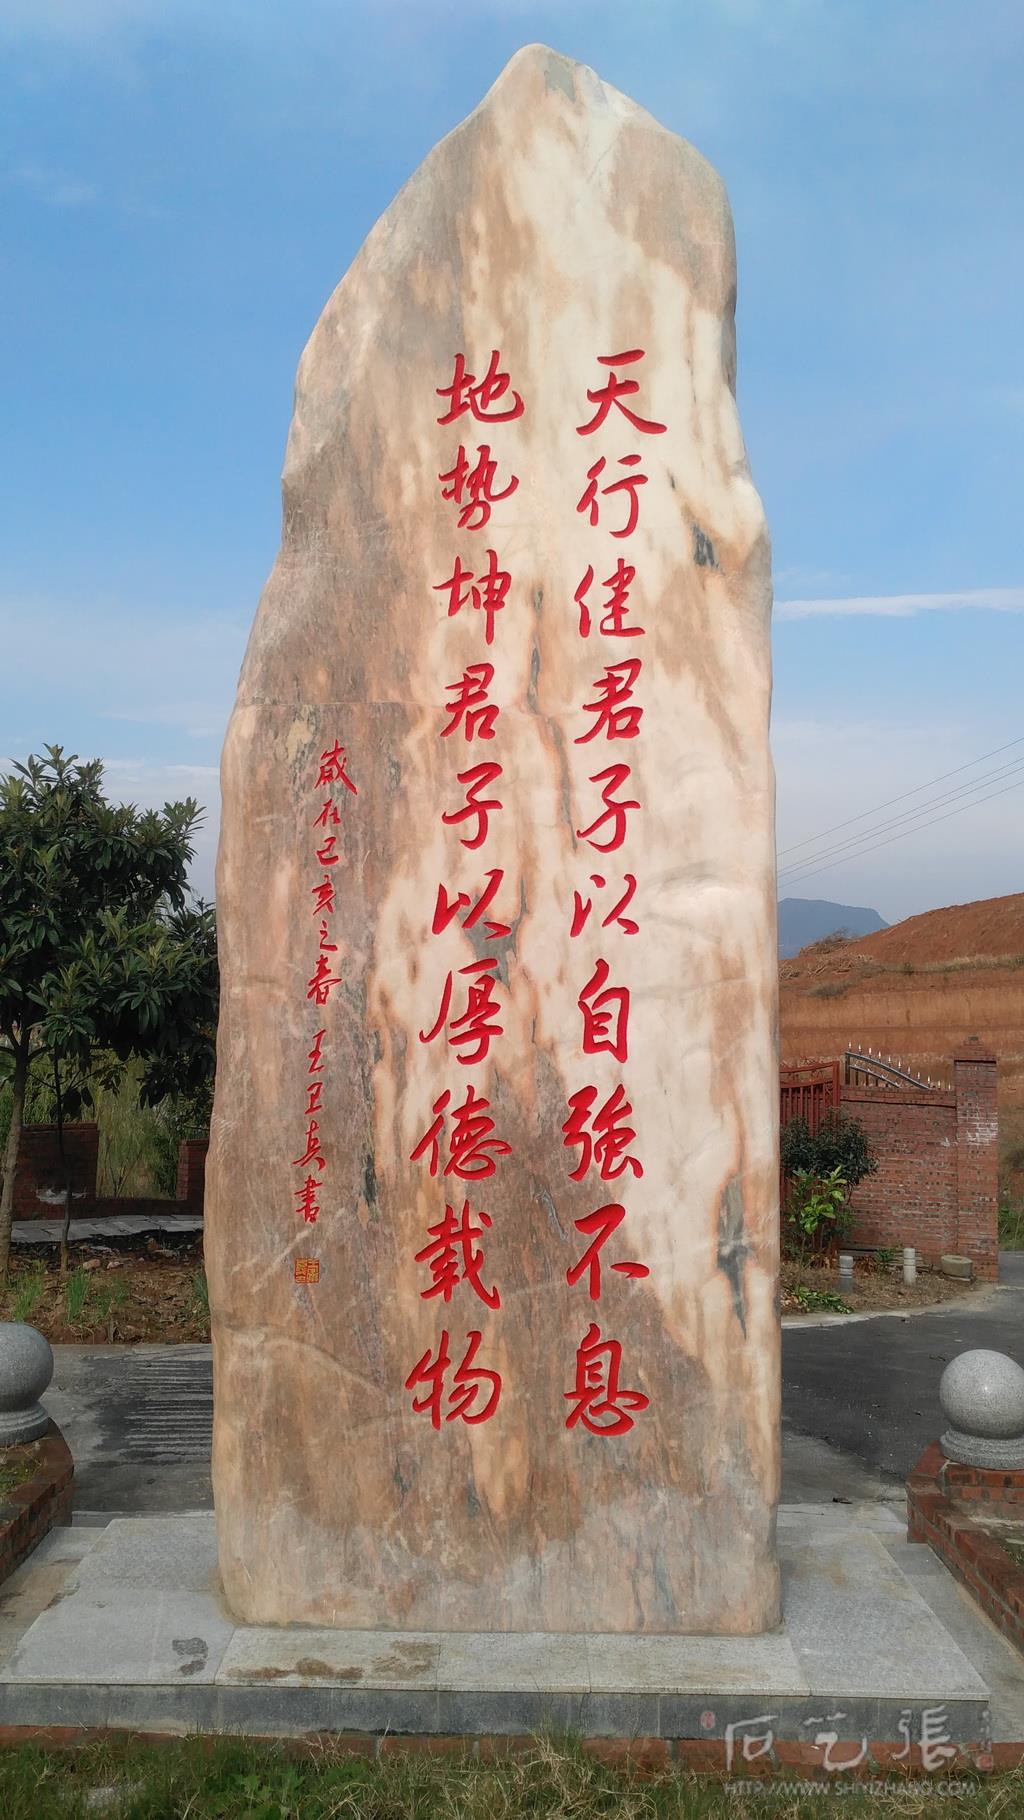 天行健君子以自強不息
地势坤君子以厚德载物
岁在己亥之春 王卫兵書
石艺張
HTTP://WWW.SHIYIZHANG.COM